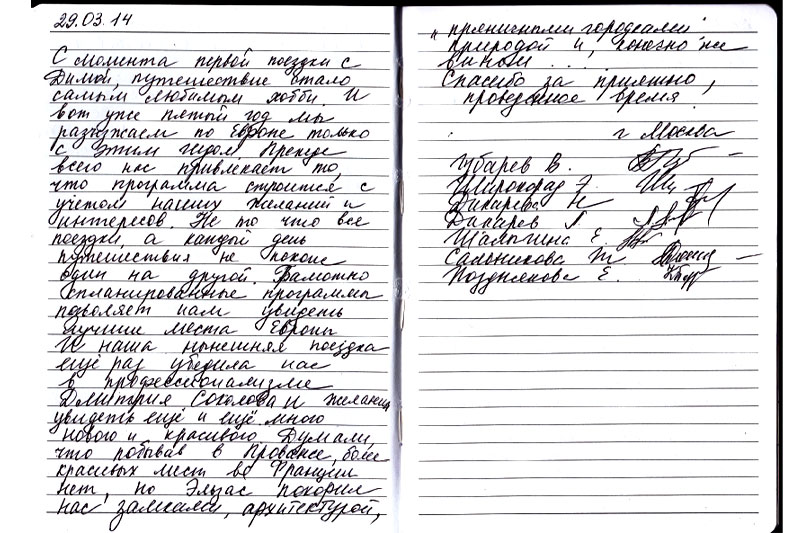 29.03.14
С момента первой поездки с
Димой, путешествие стало
самым любимым хобби. И
вот уже пятый год мы
разъезжаем по Европе только
с этим гидом. Прежде
всего нас привлекает то,
что программа строится с
учётом наших желаний и
интересов. Не то что все
поездки, а каждый день
путешествия не похож
один на другой. Грамотно
спланированные программы
позволяет нам увидеть
лучшие места Европы
И наша нынешняя поездка
ещё раз убедила нас
в профессионализме
Дмитрия Соколова и желании
увидеть ещё и ещё много
нового и красивого. Думали,
что побывав в Провансе, более
красивых мест во Франции
нет, но Эльзас покорил
нас замками, архитектурой,
"пряничными городками"
природой и, конечно же
вином...
Спасибо за приятно,
проведенное время
г Москва
Губарев В.
Широкорад Э.
Дикарева Н
Дикарев Л.
Шаляпина Е.
Сальникова Т
Позднякова Е.